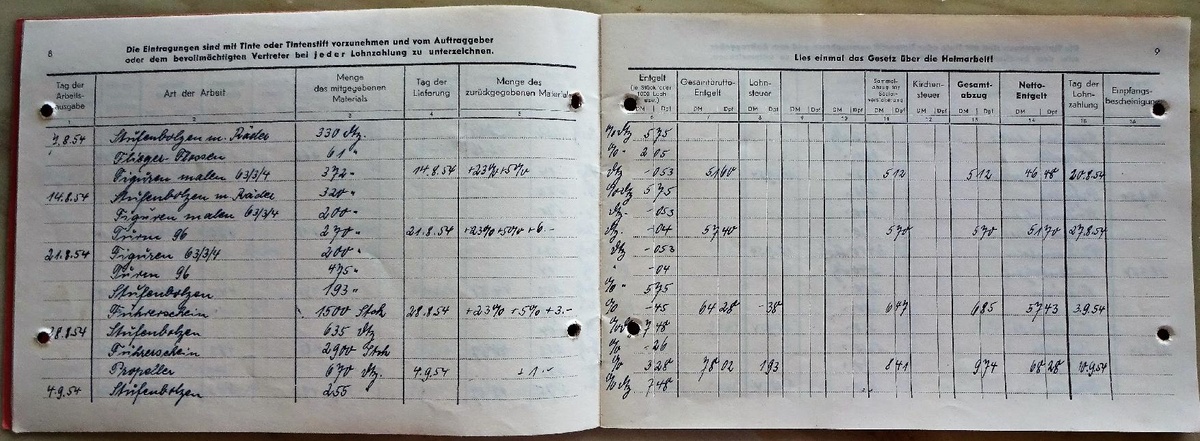 8
Die Eintragungen sind mit Tinte oder Tintenstift vorzunehmen und vom Auftraggeber
oder dem bevollmächtigten Vertreter bei jeder Lohnzahlung zu unterzeichnen.
Tag der Arbeitsausgabe Art der Arbeit Menge des mitgegebenen Materials Tag der Lieferung Menge des zurückgegebenen Materials
1 2 3 4 5
7.8.54 Stufenbolzen m. Räder 330 Stz.
Flieger Flossen 61 "
Figuren malen 63/3/4 372 " 14.8.54 +23%+5%
14.8.54 Stufenbolzen m. Räder 320 "
Figuren malen 63/3/4 200 "
Türm 96 270 " 21.8.54 +23%+5%+6.-
21.8.54 Figuren 63/3/4 200 "
Türen 96 475 "
Stufenbolzen 193 "
Führerschein 1500 Stck 28.8.54 +23% +5% +3.-
28.8.54 Stufenbolzen 635 Stz
Führerschein 2900 Stck
Propeller 670 Stz. 4.9.54
4.9.54 Stufenbolzen 255
9
Lies einmal das Gesetz über die Heimarbeit!
Entgelt Gesamtbrutto-Entgelt Lohnsteuer Kirchensteuer Gesamtabzug Netto-Entgelt Tag der Lohnzahlung Empfangsbescheinigung
DM Dpf DM Dpf DM Dpf DM Dpf DM Dpf DM Dpf
6 7 8 9 10 11 12 13 14 15 16
575
% " 205
-053 5160 512 512 46 48 20.8.54
575
-053
-04 5740 570 570 5170 27.8.54
-053
" -04
% " 575
% -45 64 28 -38 647 685 5743 3.9.54
748
% -26
% 328 7802 193 841 974 68 28 10.9.54
748